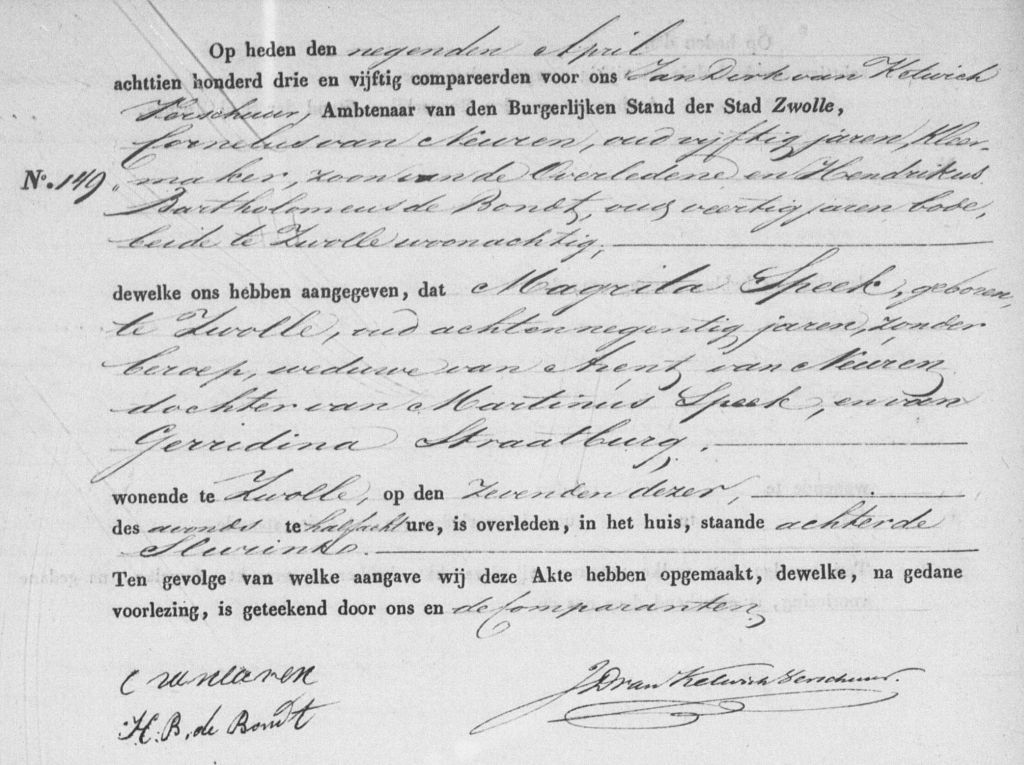 Op heden den negenden April
achttien honderd drie en vijftig compareerden voor ons Jan Dirk van Ketwich
Verschuur, Ambtenaar van den Burgerlijken Stand der Stad Zwolle,
Cornelus van Neuren, oud vijftig jaren, Kleer-
No. 149. maker, zoon van de Overledene en Hendrikus
Bartholomeus de Bondt, oud veertig jaren bode,
beide te Zwolle woonachtig,
dewelke ons hebben aangegeven, dat Magrita Speek, geboren
te Zwolle, oud achtennegentig jaren, zonder
beroep, weduwe van Arent van Neuren
dochter van Martinus Speek, en van
Gerridina Straatburg.
wonende te Zwolle, op den zevenden dezer,
des avonds te half acht ure, is overleden, in het huis, staande achter de
Ten gevolge van welke aangave wij deze Akte hebben opgemaakt, dewelke, na gedane
voorlezing, is geteekend door ons en de Comparanten
JD van Ketwich Verschuur.
H. B. de Bondt